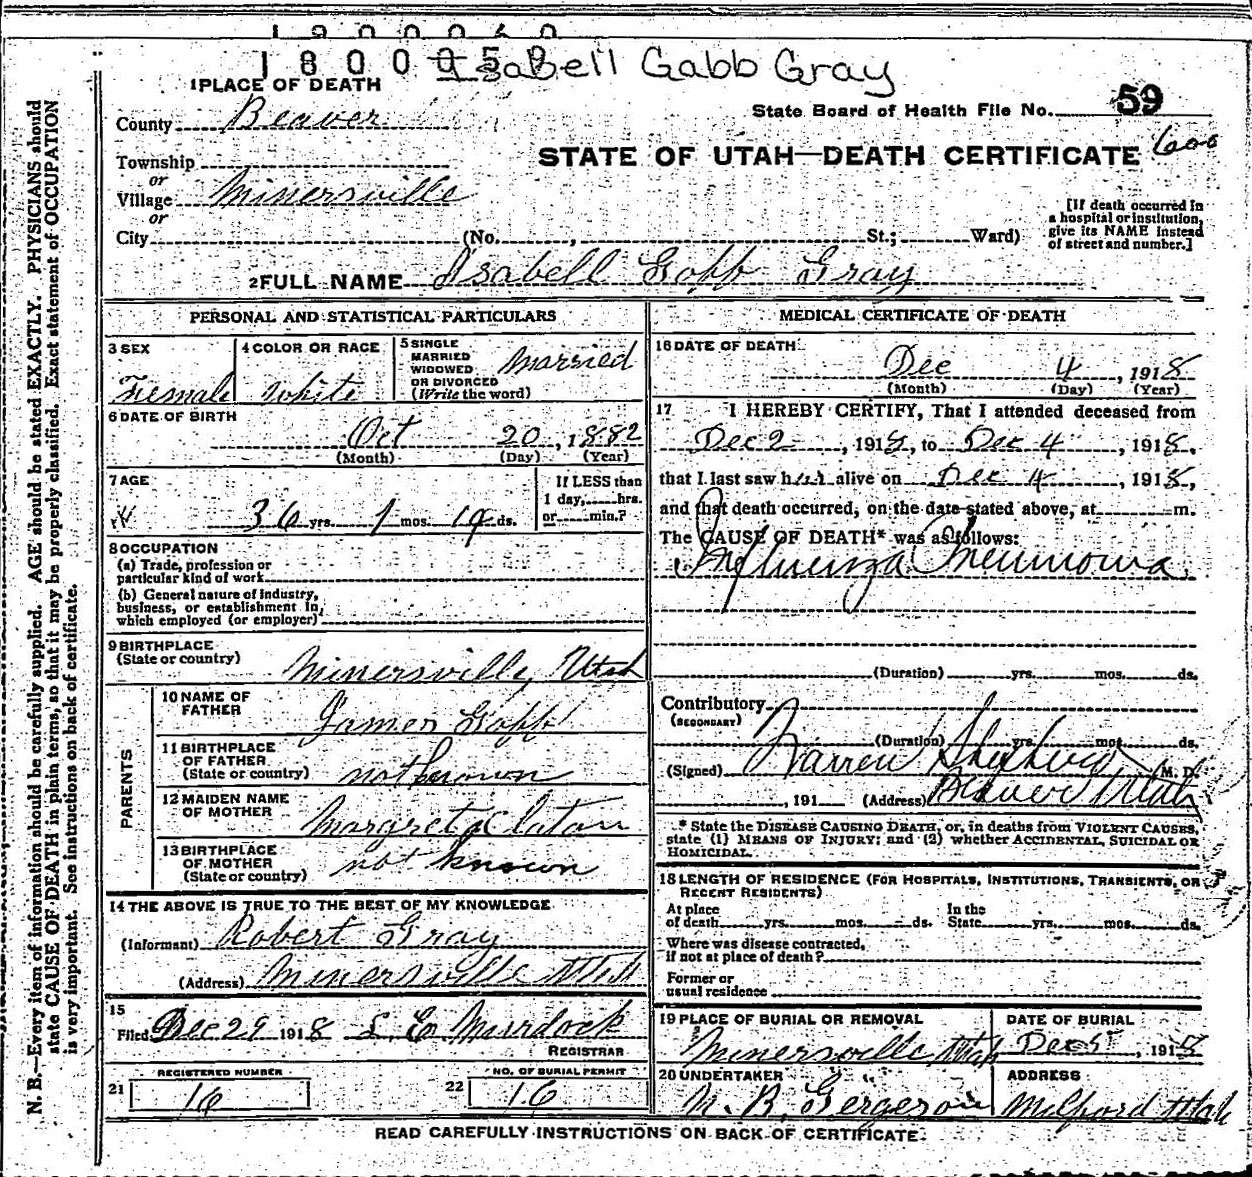 1800060
1800059 Isabell Gabb Gray
1 PLACE OF DEATH
State Board of Health File No. 59
County Beaver
STATE OF UTAH—DEATH CERTIFICATE 600
Township
or
Village Minersville
or
City (No. , St.; Ward)
[If death occurred in
a hospital or institution,
give its NAME instead
of street and number.]
2 FULL NAME Isabell Gobb Gray
PERSONAL AND STATISTICAL PARTICULARS
3 SEX
Female
4 COLOR OR RACE
White
5 SINGLE
MARRIED
WIDOWED
OR DIVORCED
(Write the word)
Married
6 DATE OF BIRTH
Oct 20, 1882
(Month) (Day) (Year)
7 AGE
36 yrs. 1 mos. 14 ds.
If LESS than
1 day, hrs.
or min.?
8 OCCUPATION
(a) Trade, profession or
particular kind of work
(b) General nature of industry,
business, or establishment in
which employed (or employer)
9 BIRTHPLACE
(State or country)
Minersville, Utah
PARENTS
10 NAME OF
FATHER
James Gobb
11 BIRTHPLACE
OF FATHER
(State or country)
not known
12 MAIDEN NAME
OF MOTHER
Margret Claton
13 BIRTHPLACE
OF MOTHER
(State or country)
not known
14 THE ABOVE IS TRUE TO THE BEST OF MY KNOWLEDGE
(Informant) Robert Gray
(Address) Minersville Utah
15
Filed Dec 29 1918 L. E. Murdock
REGISTRAR
REGISTERED NUMBER
21 16
NO. OF BURIAL PERMIT
22 16
MEDICAL CERTIFICATE OF DEATH
16 DATE OF DEATH
Dec 4, 1918
(Month) (Day) (Year)
17 I HEREBY CERTIFY, That I attended deceased from
Dec 2, 1918, to Dec 4, 1918,
that I last saw her alive on Dec 4, 1918,
and that death occurred, on the date stated above, at m.
The CAUSE OF DEATH* was as follows:
Influenza Pneumonia
(Duration) yrs. mos. ds.
Contributory
(SECONDARY)
(Duration) yrs. mos. ds.
(Signed) Warren Shepherd M. D.
, 191 (Address) Beaver Utah
* State the DISEASE CAUSING DEATH, or, in deaths from VIOLENT CAUSES,
state (1) MEANS OF INJURY; and (2) whether ACCIDENTAL, SUICIDAL OR
HOMICIDAL.
18 LENGTH OF RESIDENCE (FOR HOSPITALS, INSTITUTIONS, TRANSIENTS, OR
RECENT RESIDENTS)
At place
of death yrs. mos. ds.
In the
State yrs. mos. ds.
Where was disease contracted,
if not at place of death?
Former or
usual residence
19 PLACE OF BURIAL OR REMOVAL
Minersville Utah
DATE OF BURIAL
Dec 5, 1918
20 UNDERTAKER
N. B. Gergeson
ADDRESS
Milford Utah
READ CAREFULLY INSTRUCTIONS ON BACK OF CERTIFICATE.
N. B.—Every item of information should be carefully supplied. AGE should be stated EXACTLY. PHYSICIANS should
state CAUSE OF DEATH in plain terms, so that it may be properly classified. Exact statement of OCCUPATION
is very important. See instructions on back of certificate.